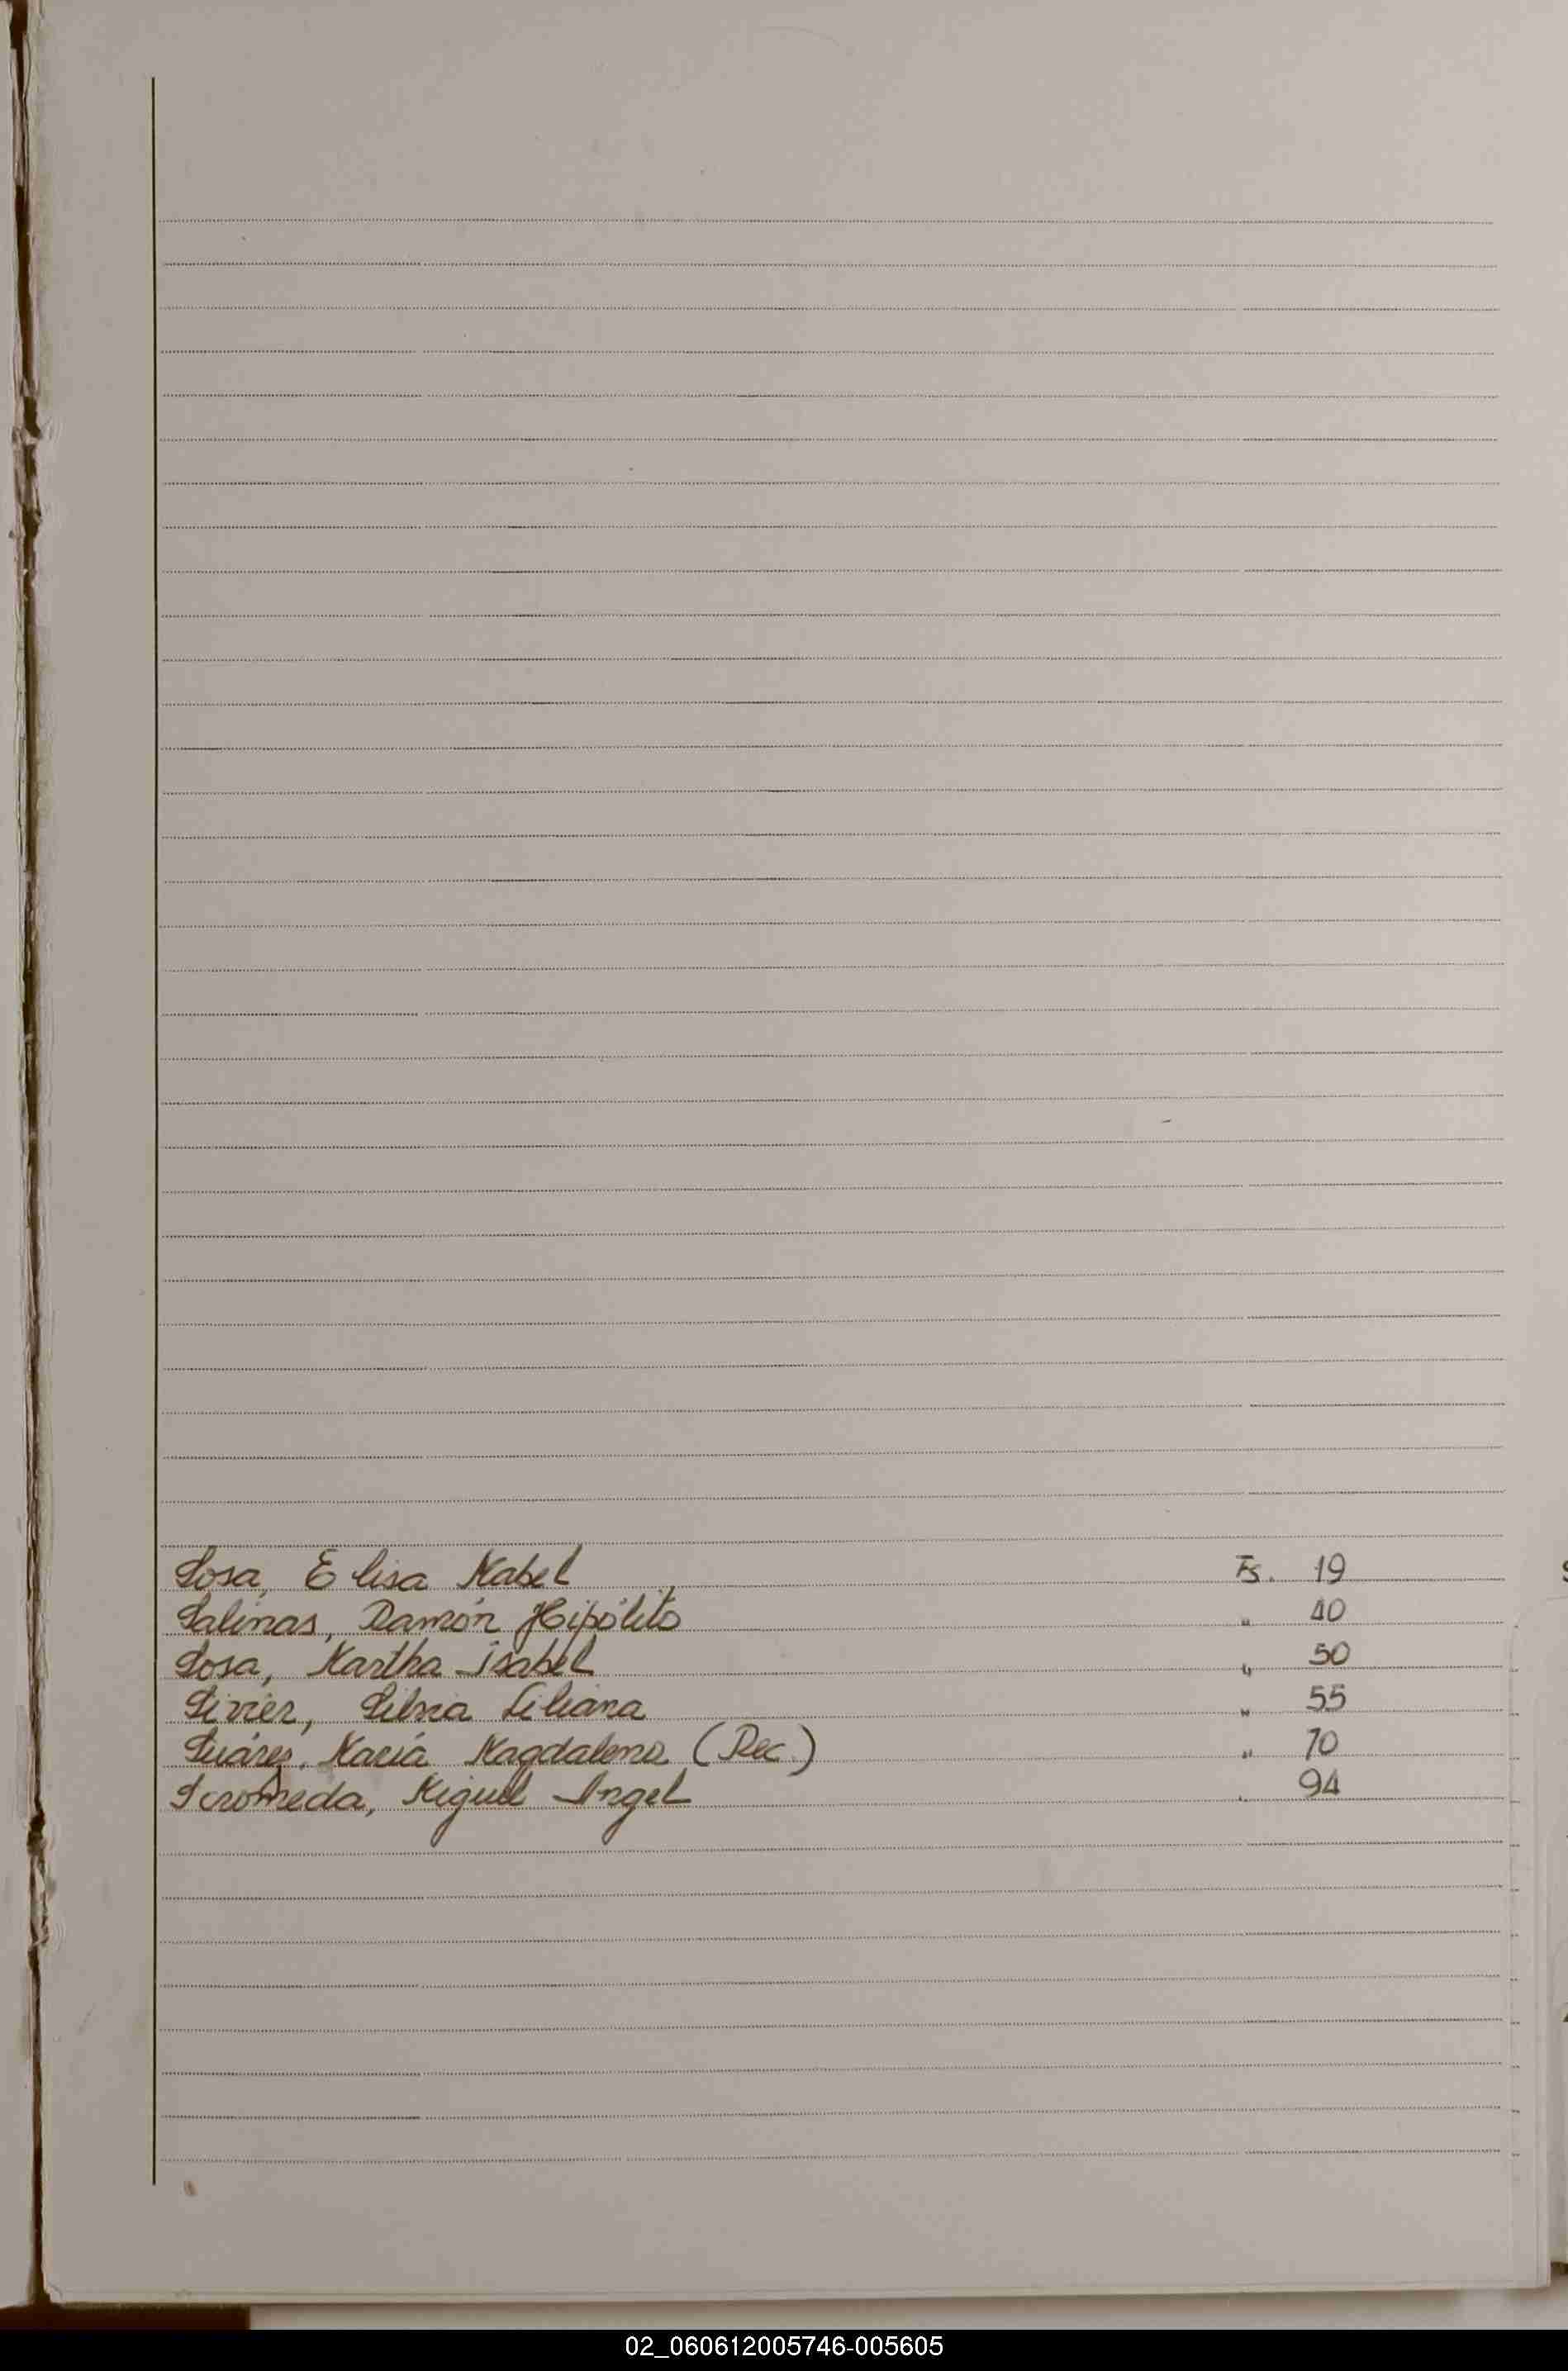 Sosa, Elisa Mabel Fs. 19
Salinas, Ramón Hipólito " 40
Sosa, Martha Isabel " 50
Sivier, Silvia Liliana " 55
Suárez, María Magdalena (Rec.) " 70
Scromeda, Miguel Angel " 94
02_060612005746-005605